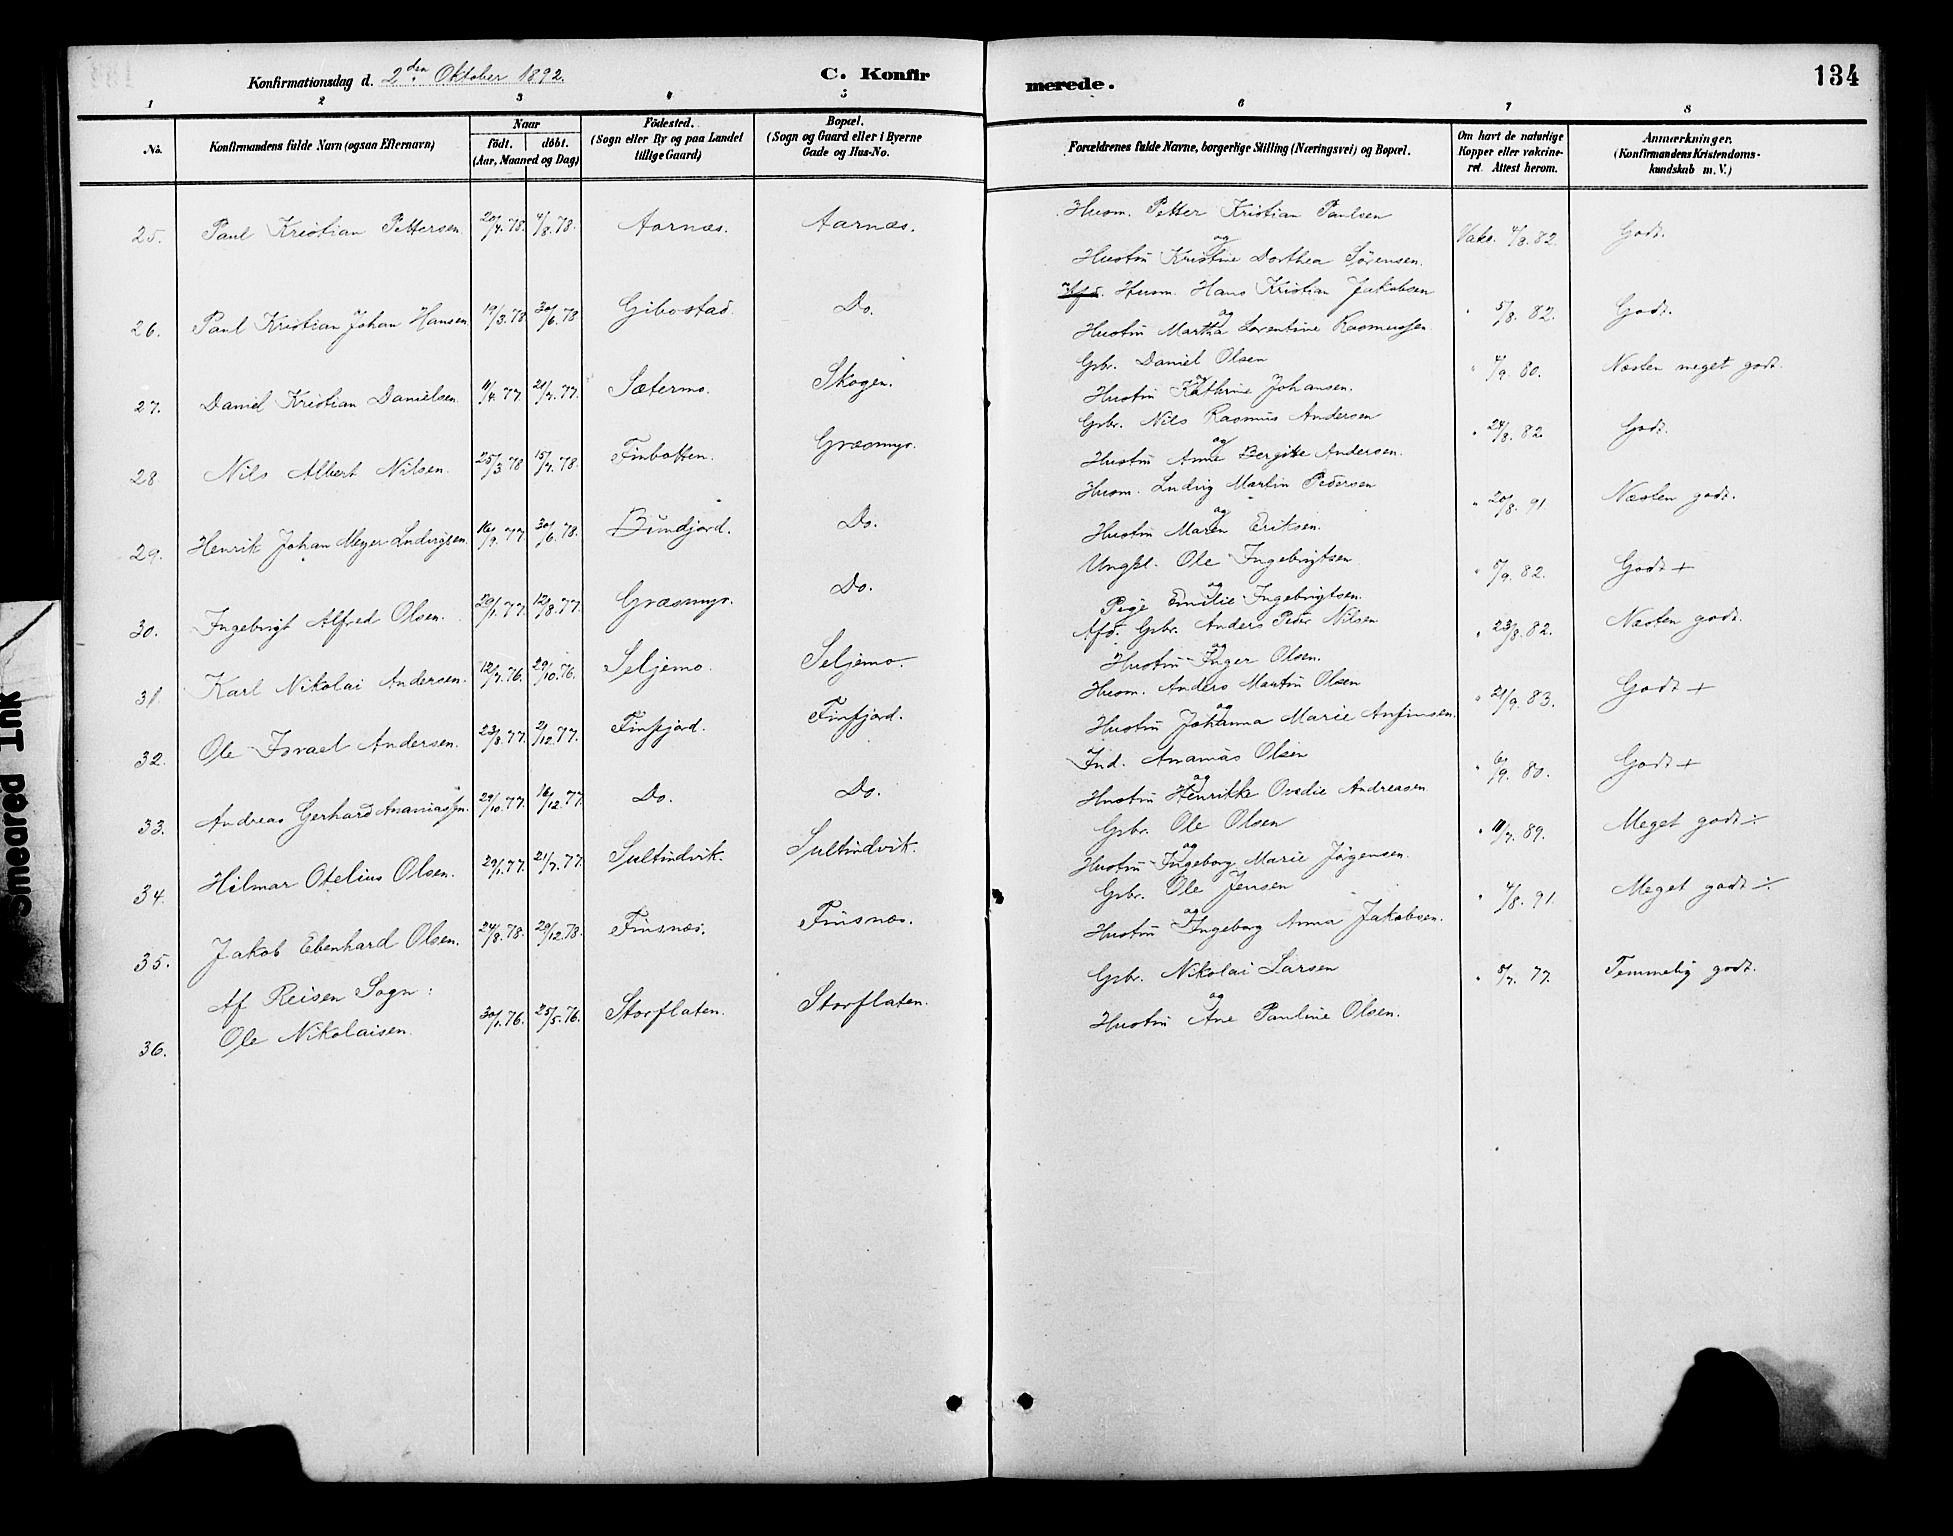 Konfirmationsdag d. 2den Oktober 1892.
C. Konfirmerede.
134
1 2 3 4 5 6 7 8
No.
Konfirmandens fulde Navn (ogsaa Efternavn)
Naar
födt. döbt.
(Aar, Maaned og Dag)
Födested.
(Sogn eller By og paa Landet tillige Gaard)
Bopæl.
(Sogn og Gaard eller i Byerne Gade og Hus-No.
Forældrenes fulde Navne, borgerlige Stilling (Næringsvei) og Bopæl.
Om havt de naturlige Kopper eller vakcineret. Attest herom.
Anmærkninger.
(Konfirmandens Kristendomskundskab m. V.)
25. Paul Kristian Pettersen 20/4.78. 4/8.78. Aarnæs. Aarnæs. Husm. Petter Kristian Paulsen
og
Hustru Kristine Dorthea Sørensen. Vakc. 4/9.82. Godt.
26. Paul Kristian Johan Hansen 19/3.78 30/6.78 Gibostad Do. Husm. Hans Kristian Jakobsen
og
Hustru Martha Lorentine Rasmussen " 5/8.82. Godt.
27. Daniel Kristian Danielsen 11/4.77 21/7.77. Sætermo. Skogen. Gbr. Daniel Olsen
Hustru Kathrine Johansen. " 4/9.80. Næsten meget godt.
28 Nils Albert Nilsen. 25/3.78 15/7.78. Finbotten. Græsmyr. Gbr. Nils Rasmus Andersen
og
Hustru Anne Bergitte Andersen. " 24/8.82 Godt.
29. Henrik Johan Meyer Ludvigsen 16/9.77 30/6.78. Bundjord. Do. Husm. Ludvig Martin Pedersen
og
Hustru Maren Eriksen. " 20/8.91 Næsten godt.
30. Ingebrigt Alfred Olsen. 29/1.77. 12/8.77. Græsmyr. Do. Ungkl. Ole Ingebrigtsen
og
Pige Emilie Ingebrigtsen. " 5/9.82. Godt +
31. Karl Nikolai Andersen. 12/7.76. 29/10.76. Seljemo. Seljemo. Afd. Gbr. Anders Peder Nilsen
og
Hustru Inger Olsen. " 23/8.82. Næsten godt.
32. Ole Israel Andersen. 23/8.77. 2/12.77. Finfjord. Finfjord. Husm. Anders Martin Olsen
og
Hustru Johanna Marie Anfinsen. " 21/9.83. Godt +
33. Andreas Gerhard Ananiassen. 29/10.77. 16/12.77. Do. Do. Ind. Ananias Olsen
og
Hustru Henrikke Ovedie Andreasen " 6/9.80. Godt +
34. Hilmar Otelius Olsen. 29/1.77. 21/7.77. Sultindvik. Sultindvik. Gbr. Ole Olsen
og
Hustru Ingeborg Marie Jørgensen. " 11/7.89. Meget godt ÷
35. Jakob Ebenhard Olsen. 24/8.78. 29/12.78. Finsnæs. Finsnæs. Gbr. Ole Jensen
og
Hustru Ingeborg Anna Jakobsen. " 4/8.91. Meget godt ÷
Af Reisen Sogn:
36. Ole Nikolaisen. 30/1.76. 25/5.76. Storflaten. Storflaten. Gbr. Nikolai Larsen
og
Hustru Ane Pauline Olsen. " 5/7.77. Temmelig godt.
Smeared Ink